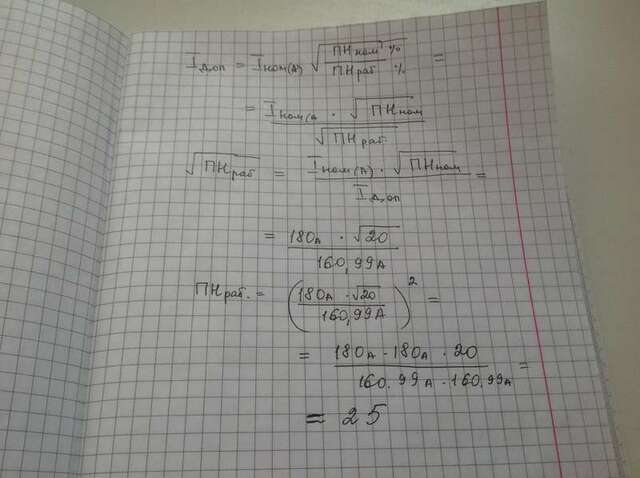 I д.оп = I ном(А) √(ПНном % / ПНраб %) =
= I ном(А · √ПНном / √ПНраб.
√ПНраб = I ном(А) · √ПНном / I д.оп =
= 180А · √20 / 160,99А
ПНраб. = (180А · √20 / 160,99А)² =
= 180А · 180А · 20 / 160.99А · 160,99А =
= 25